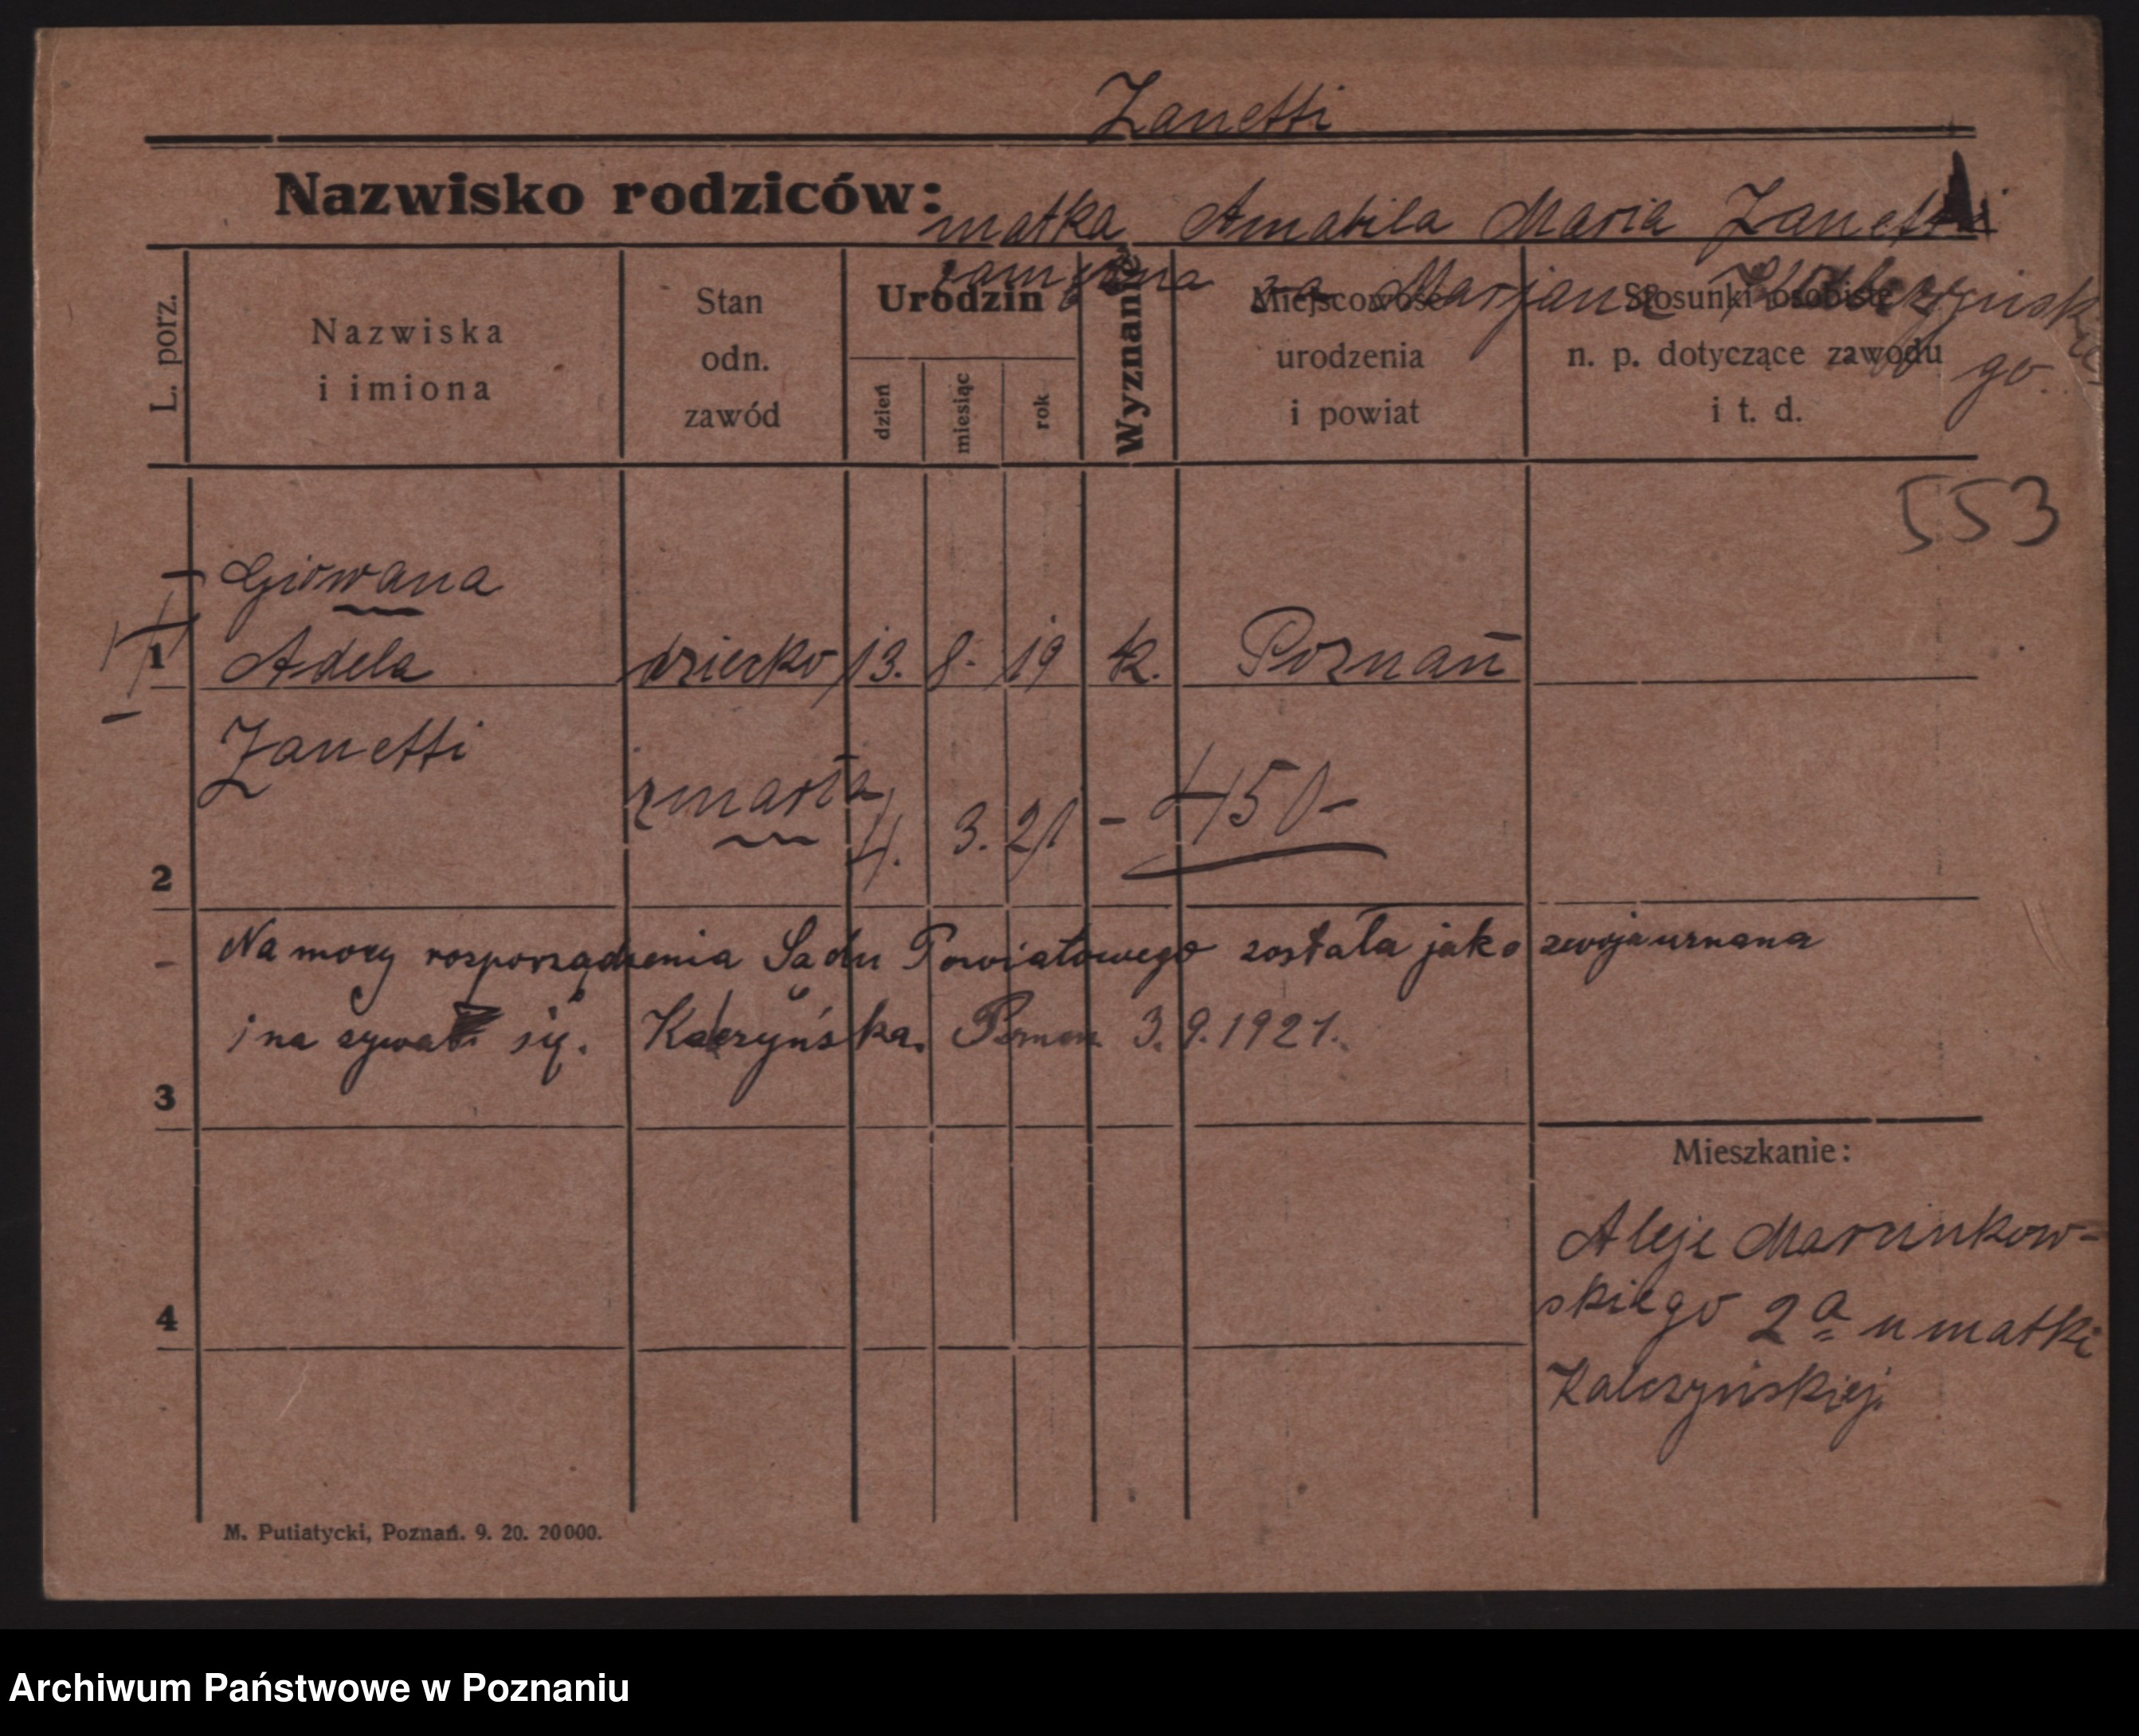 Zanetti
Nazwisko rodziców: matka Amabila Maria Zanetti
zamężna za Marjana Kałczyńskie
go.
L. porz.
Nazwiska
i imiona
Stan
odn.
zawód
Urodzin
dzień
miesiąc
rok
Wyznanie
Miejscowość
urodzenia
i powiat
Stosunki osobiste
n. p. dotyczące zawodu
i t. d.
553
Giowana
1 Adela dziecko 13. 8. 19 k. Poznań
Zanetti
zmarła 4. 3. 21 - 450-
2
Na mocy rozporządzenia Sądu Powiatowego została jako swoja uznana
i nazywa się. Kałczyńska. Poznań 3.9.1921.
3
Mieszkanie:
Aleje Marcinkow-
skiego 2a u matki
Kałczyńskiej.
4
M. Putiatycki, Poznań. 9. 20. 20000.
Archiwum Państwowe w Poznaniu